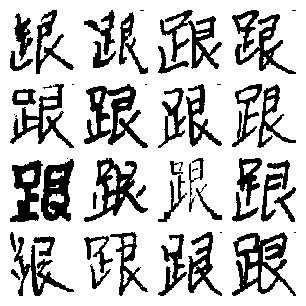 跟跟跟跟
跟跟跟跟
跟跟跟跟
跟跟跟跟